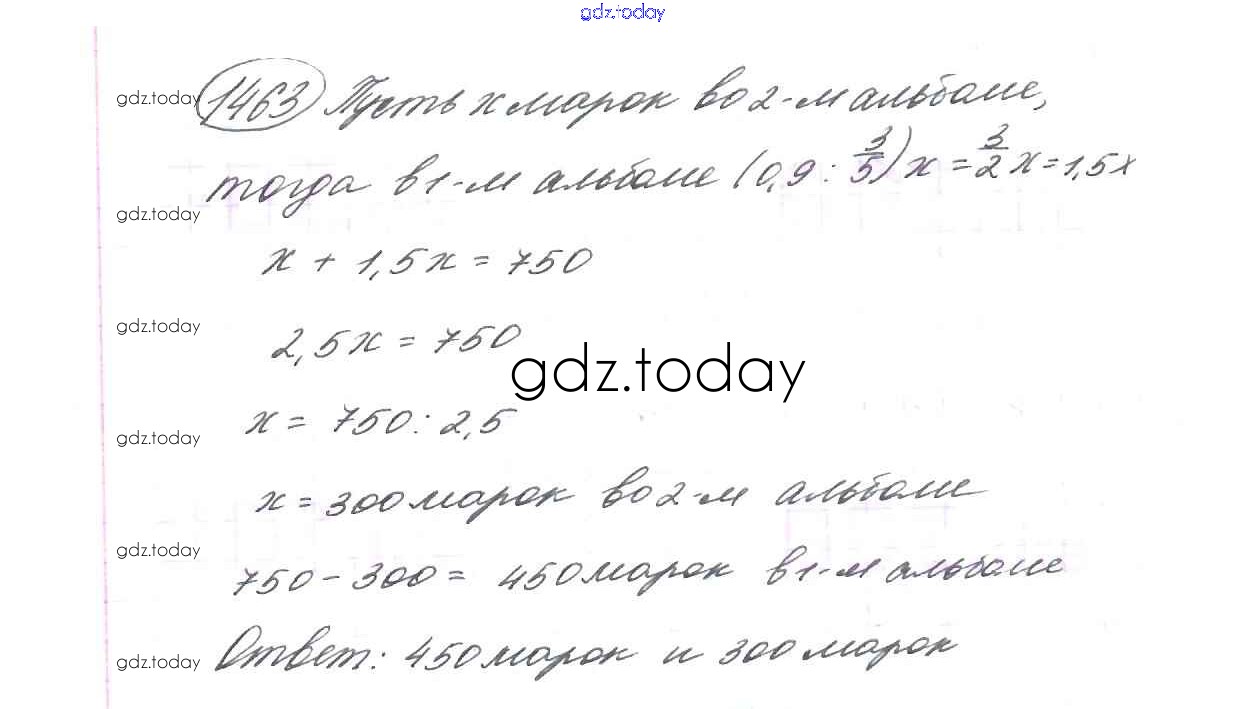 gdz.today
gdz.today
1463 Пусть x марок во 2-м альбоме,
тогда в 1-м альбоме (0,9 : 3/5) x = 3/2 x = 1,5x
gdz.today
x + 1,5x = 750
gdz.today
2,5x = 750
gdz.today
x = 750 : 2,5
gdz.today
x = 300 марок во 2-м альбоме
gdz.today
750 - 300 = 450 марок в 1-м альбоме
gdz.today
Ответ: 450 марок и 300 марок